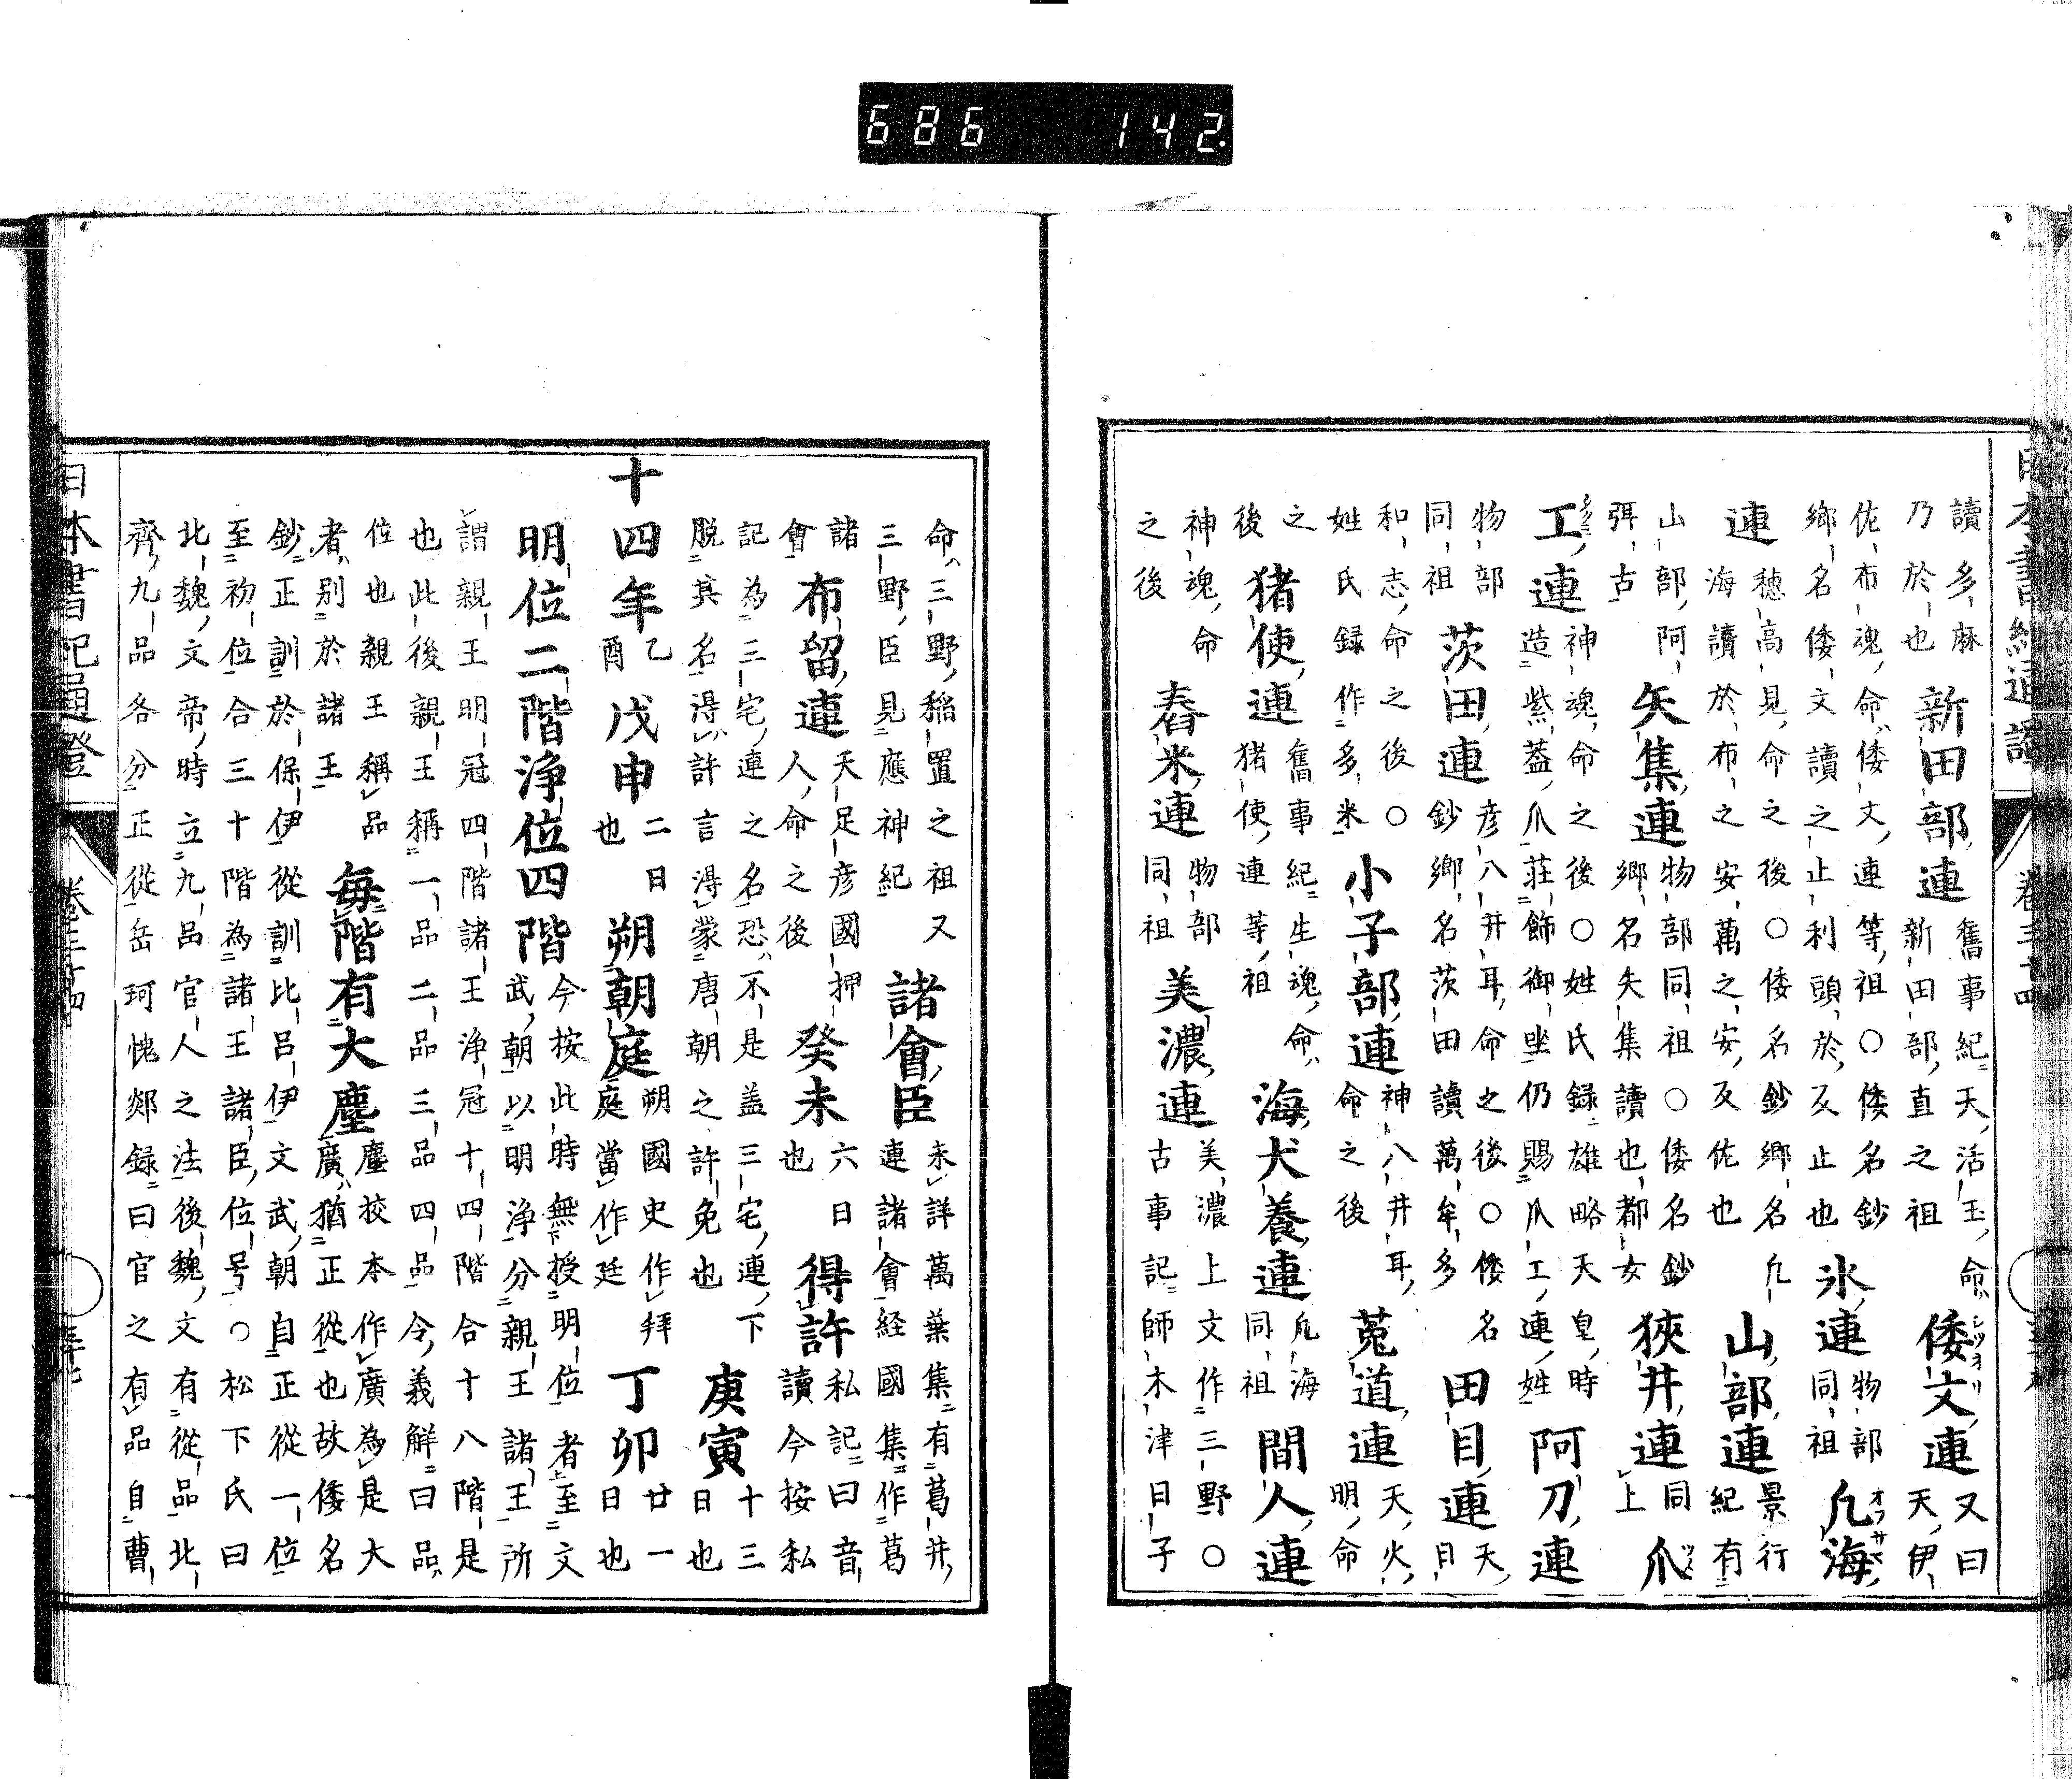 686 142.
讀多麻新田部連舊事紀天活玉命
乃於也新田部直之祖倭文連又曰天伊
佐布魂命倭文連等祖○倭名鈔
鄉名倭文讀之止利頭於反止也氷連物部同祖凡海
連穗高見命之後○倭名鈔鄉名凡
海讀於布之安萬之安反佐也山部連景行紀有
山部阿弭古矢集連物部同祖○倭名鈔鄉名矢集讀也都女狹井連同上爪
工連神魂命之後○姓氏録雄略天皇時
造紫蓋爪莊飾御坐仍賜爪工連姓阿刀連
物部同祖茨田連彦八井耳命之後○倭名鈔鄉名茨田讀萬牟多田目連天日
和志命之後○姓氏録作多米小子部連神八井耳命之後菟道連天火明命
之後猪使連舊事紀生魂命猪使連等祖海犬養連凡海同祖間人連
神魂命之後舂米連物部同祖美濃連美濃上文作三野○古事記師木津日子
命三野稲置之祖又
三野臣見應神紀諸會臣未詳萬葉集有葛井連諸會経國集作葛
諸會布留連天足彦國押人命之後癸未六日也得許私記曰音讀今按私
記為三宅連之名恐不是盖三宅連下
脱其名淂許言淂蒙唐朝之許免也庚寅十三日也
十四年乙酉戊申二日也朔朝庭朔國史作拜庭當作廷丁卯廿一日也
明位二階浄位四階今按此時無授明位者至文武朝以明浄分親王諸王所
謂親王明冠四階諸王浄冠十四階合十八階是
也此後親王稱一品二品三品四品今義解曰品
位也親王稱品者別於諸王每階有大廣塵校本作廣為是大廣猶正從也故倭名
鈔正訓於保伊從訓比呂伊文武朝自正從一位
至初位合三十階為諸王諸臣位号○松下氏曰
北魏文帝時立九品官人之法後魏文有從品北
齊九品各分正從岳珂愧郯録曰官之有品自曹